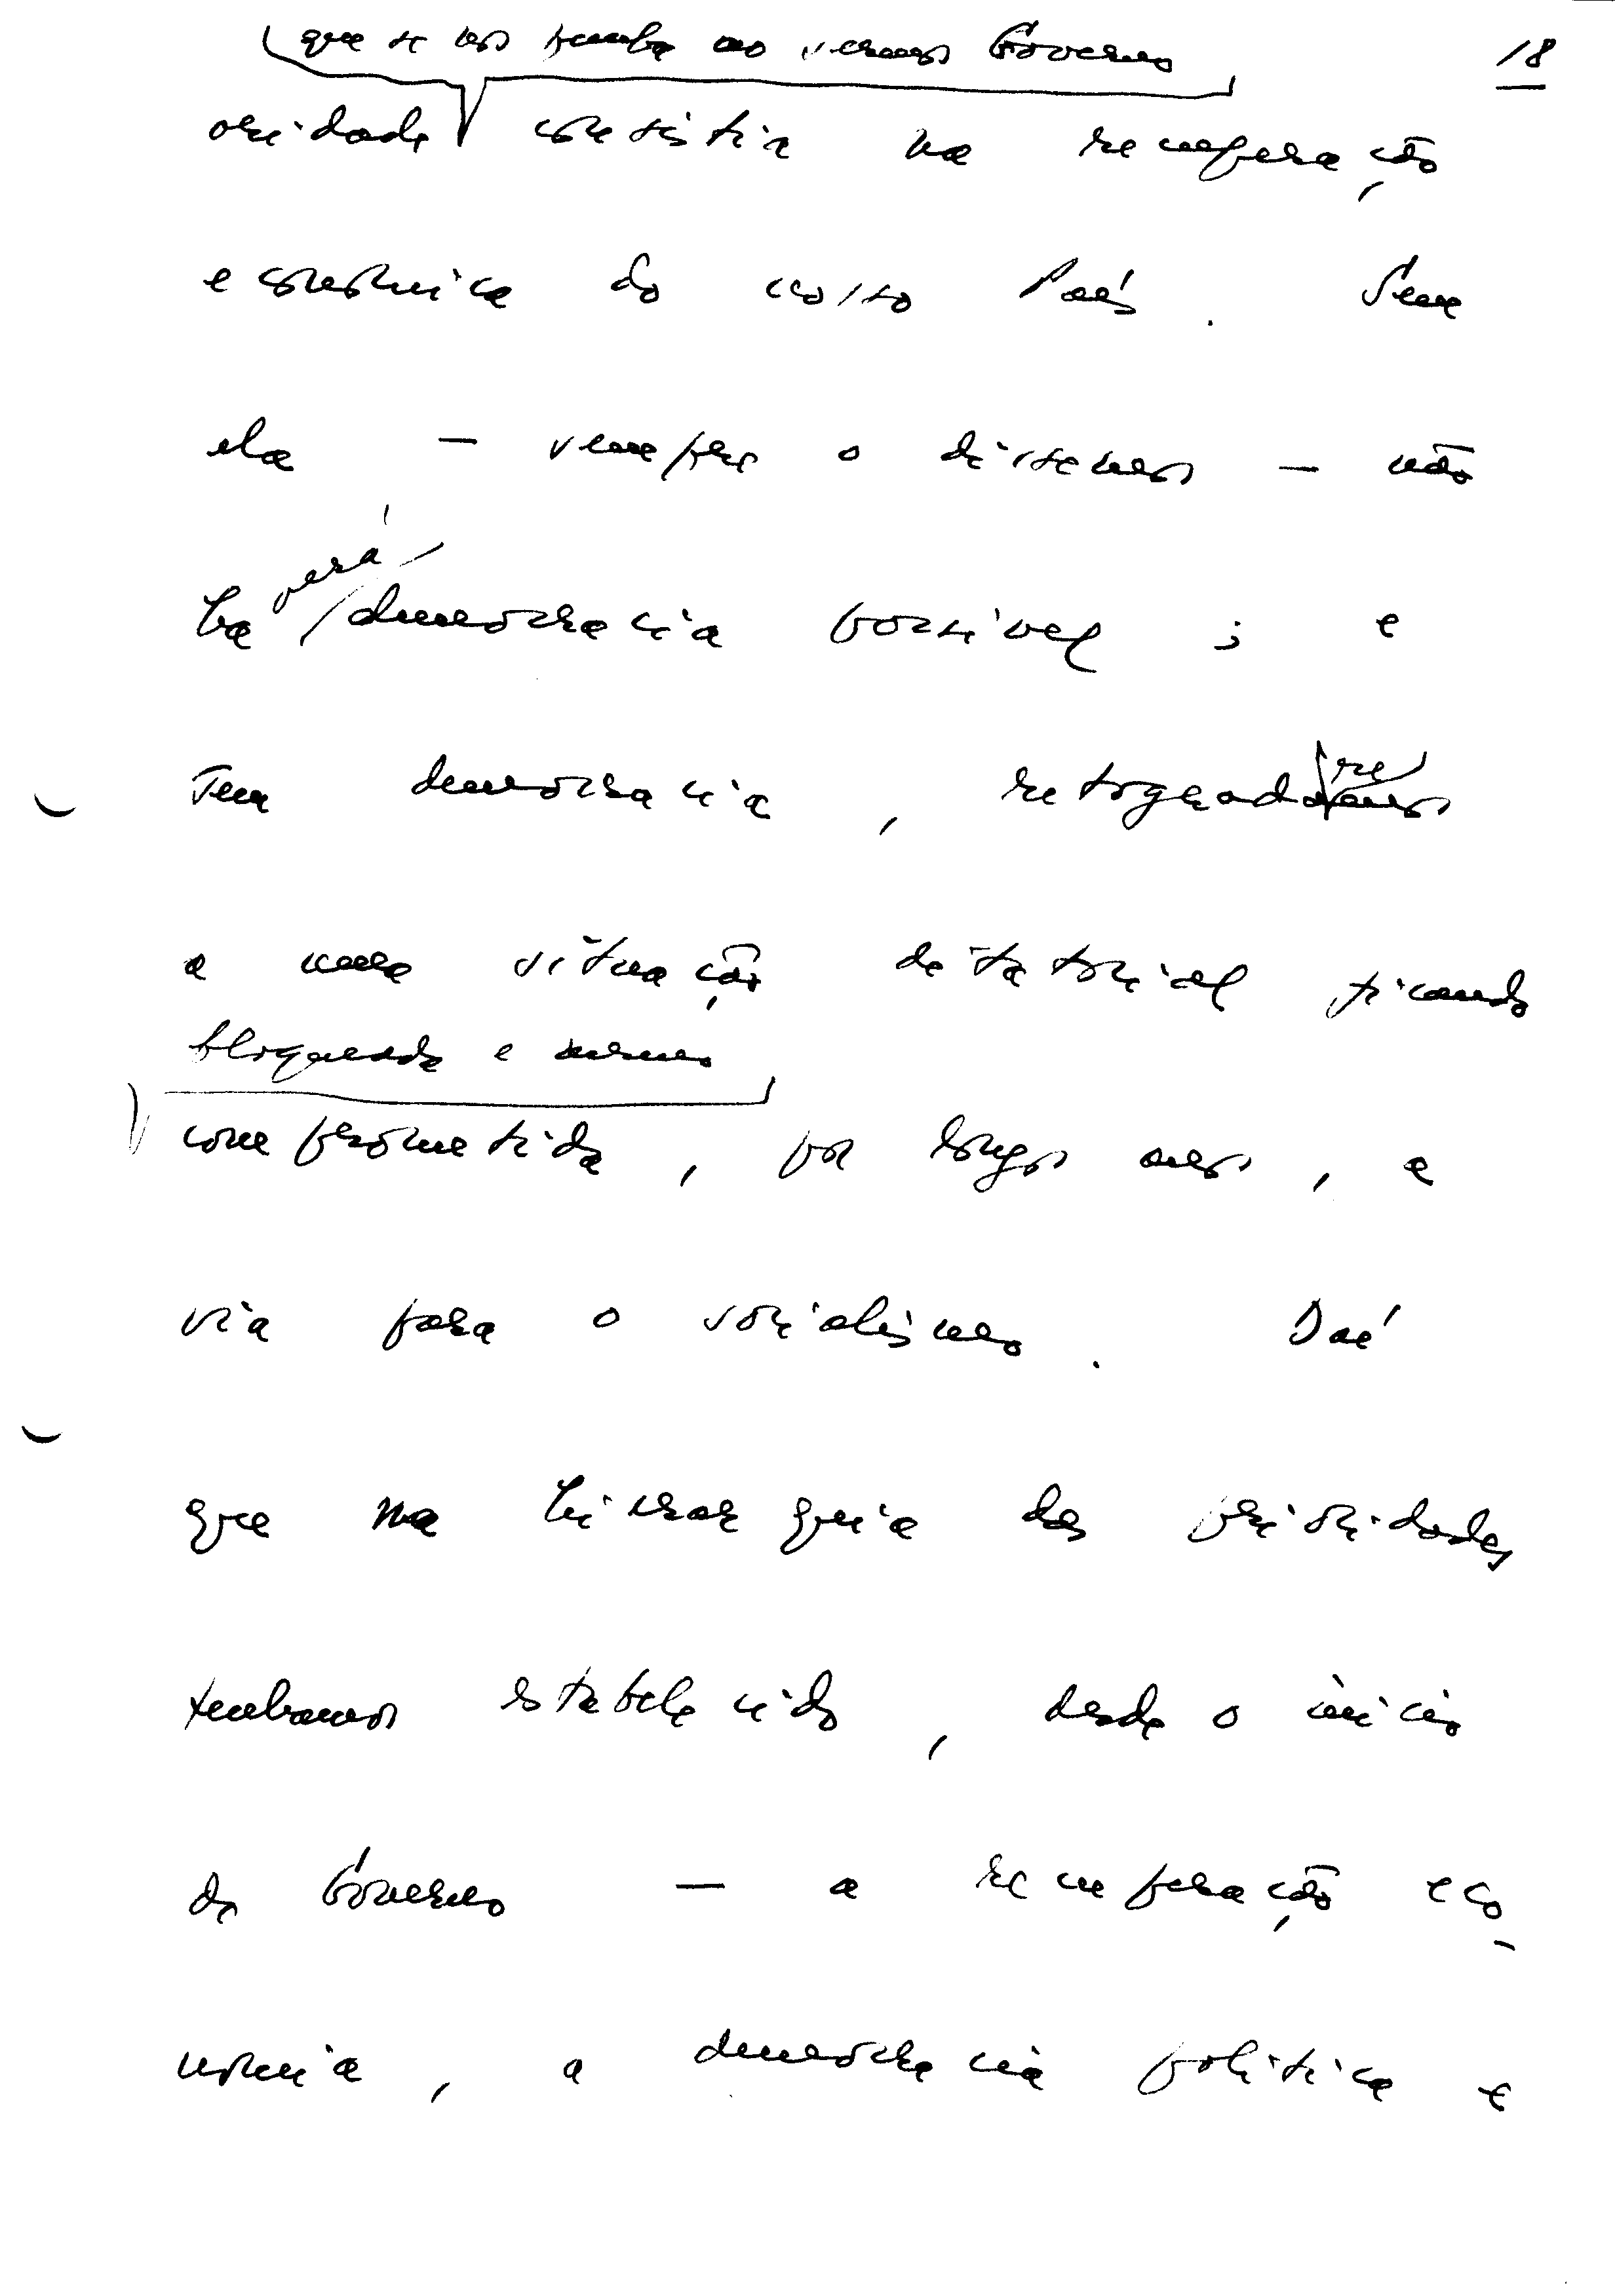 que se nos punha ao nosso Governo
18
oridade consistia na recuperação
económica do nosso País. Sem
ela — sempre o dissemos — não
haverá democracia possível; e
sem democracia, retrogradaremos
a uma situação ditatorial ficando
bloqueada e mesmo
comprometida, por longos anos, a
via para o socialismo. Daí
que na hierarquia das prioridades
tenhamos estabelecido, desde o início
do Governo — a recuperação eco-
nomia, a democracia política e